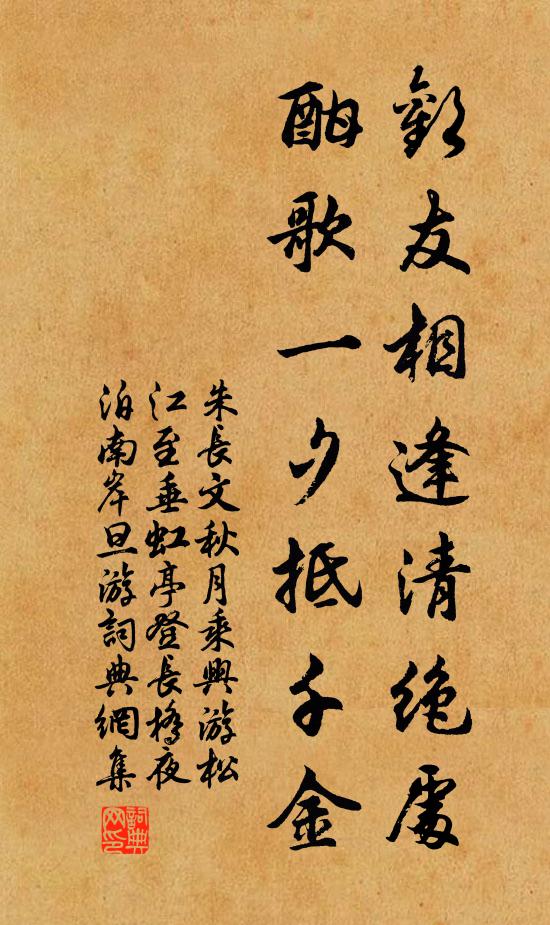 歡友相逢清絶處
酣歌一夕抵千金
朱長文秋月乘興游松
江至垂虹亭登長橋夜
泊南岸旦游詞典網集
詞典网印